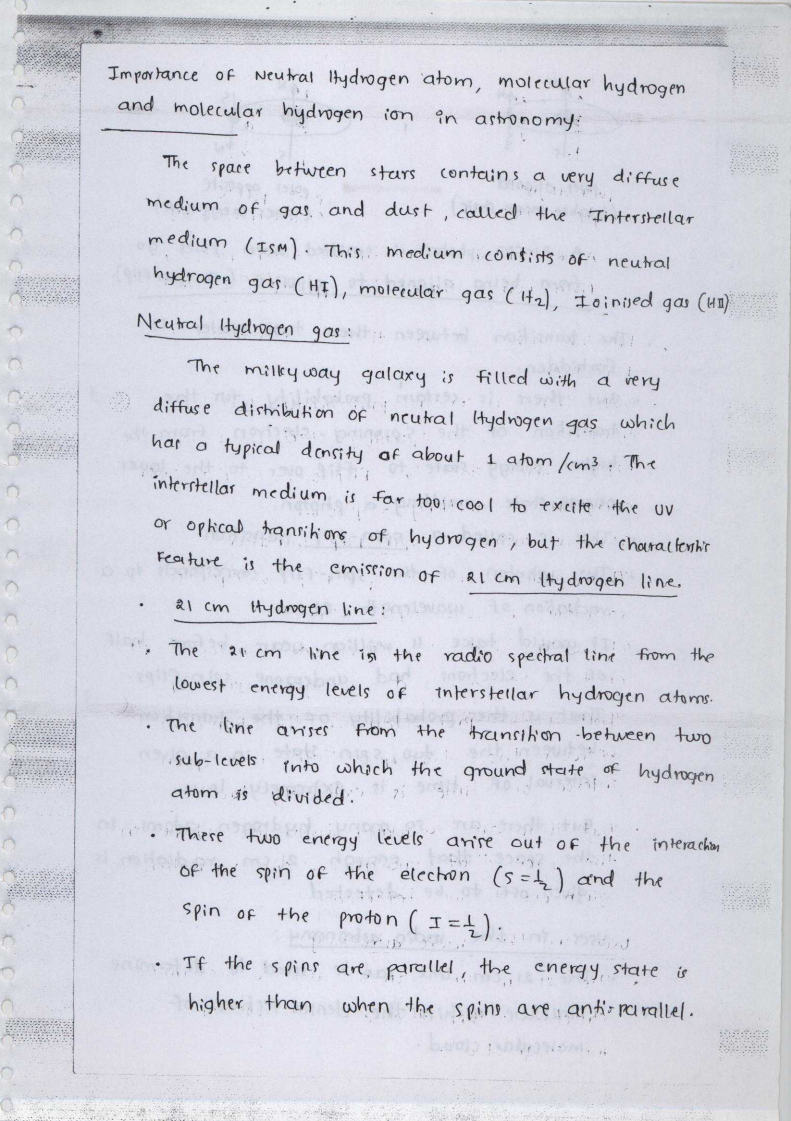 Importance of Neutral Hydrogen atom, molecular hydrogen
and molecular hydrogen ion in astronomy:
The space between stars contains a very diffuse
medium of gas and dust, called the Interstellar
medium (ISM). This medium consists of neutral
hydrogen gas (HI), molecular gas (H2), Ioinised gas (HII)
Neutral Hydrogen gas:
The milky way galaxy is filled with a very
diffuse distribution of neutral Hydrogen gas which
has a typical density of about 1 atom/cm³. The
interstellar medium is far too cool to excite the UV
or optical transitions of hydrogen, but the characteristic
Feature is the emission of 21 cm Hydrogen line.
• 21 cm Hydrogen line:
• The 21 cm line is the radio spectral line from the
lowest energy levels of interstellar hydrogen atoms.
• The line arises from the transition between two
sub-levels into which the ground state of hydrogen
atom is divided.
• These two energy levels arise out of the interaction
of the spin of the electron (S = 1/2) and the
spin of the proton (I = 1/2).
• If the spins are parallel, the energy state is
higher than when the spins are anti-parallel.